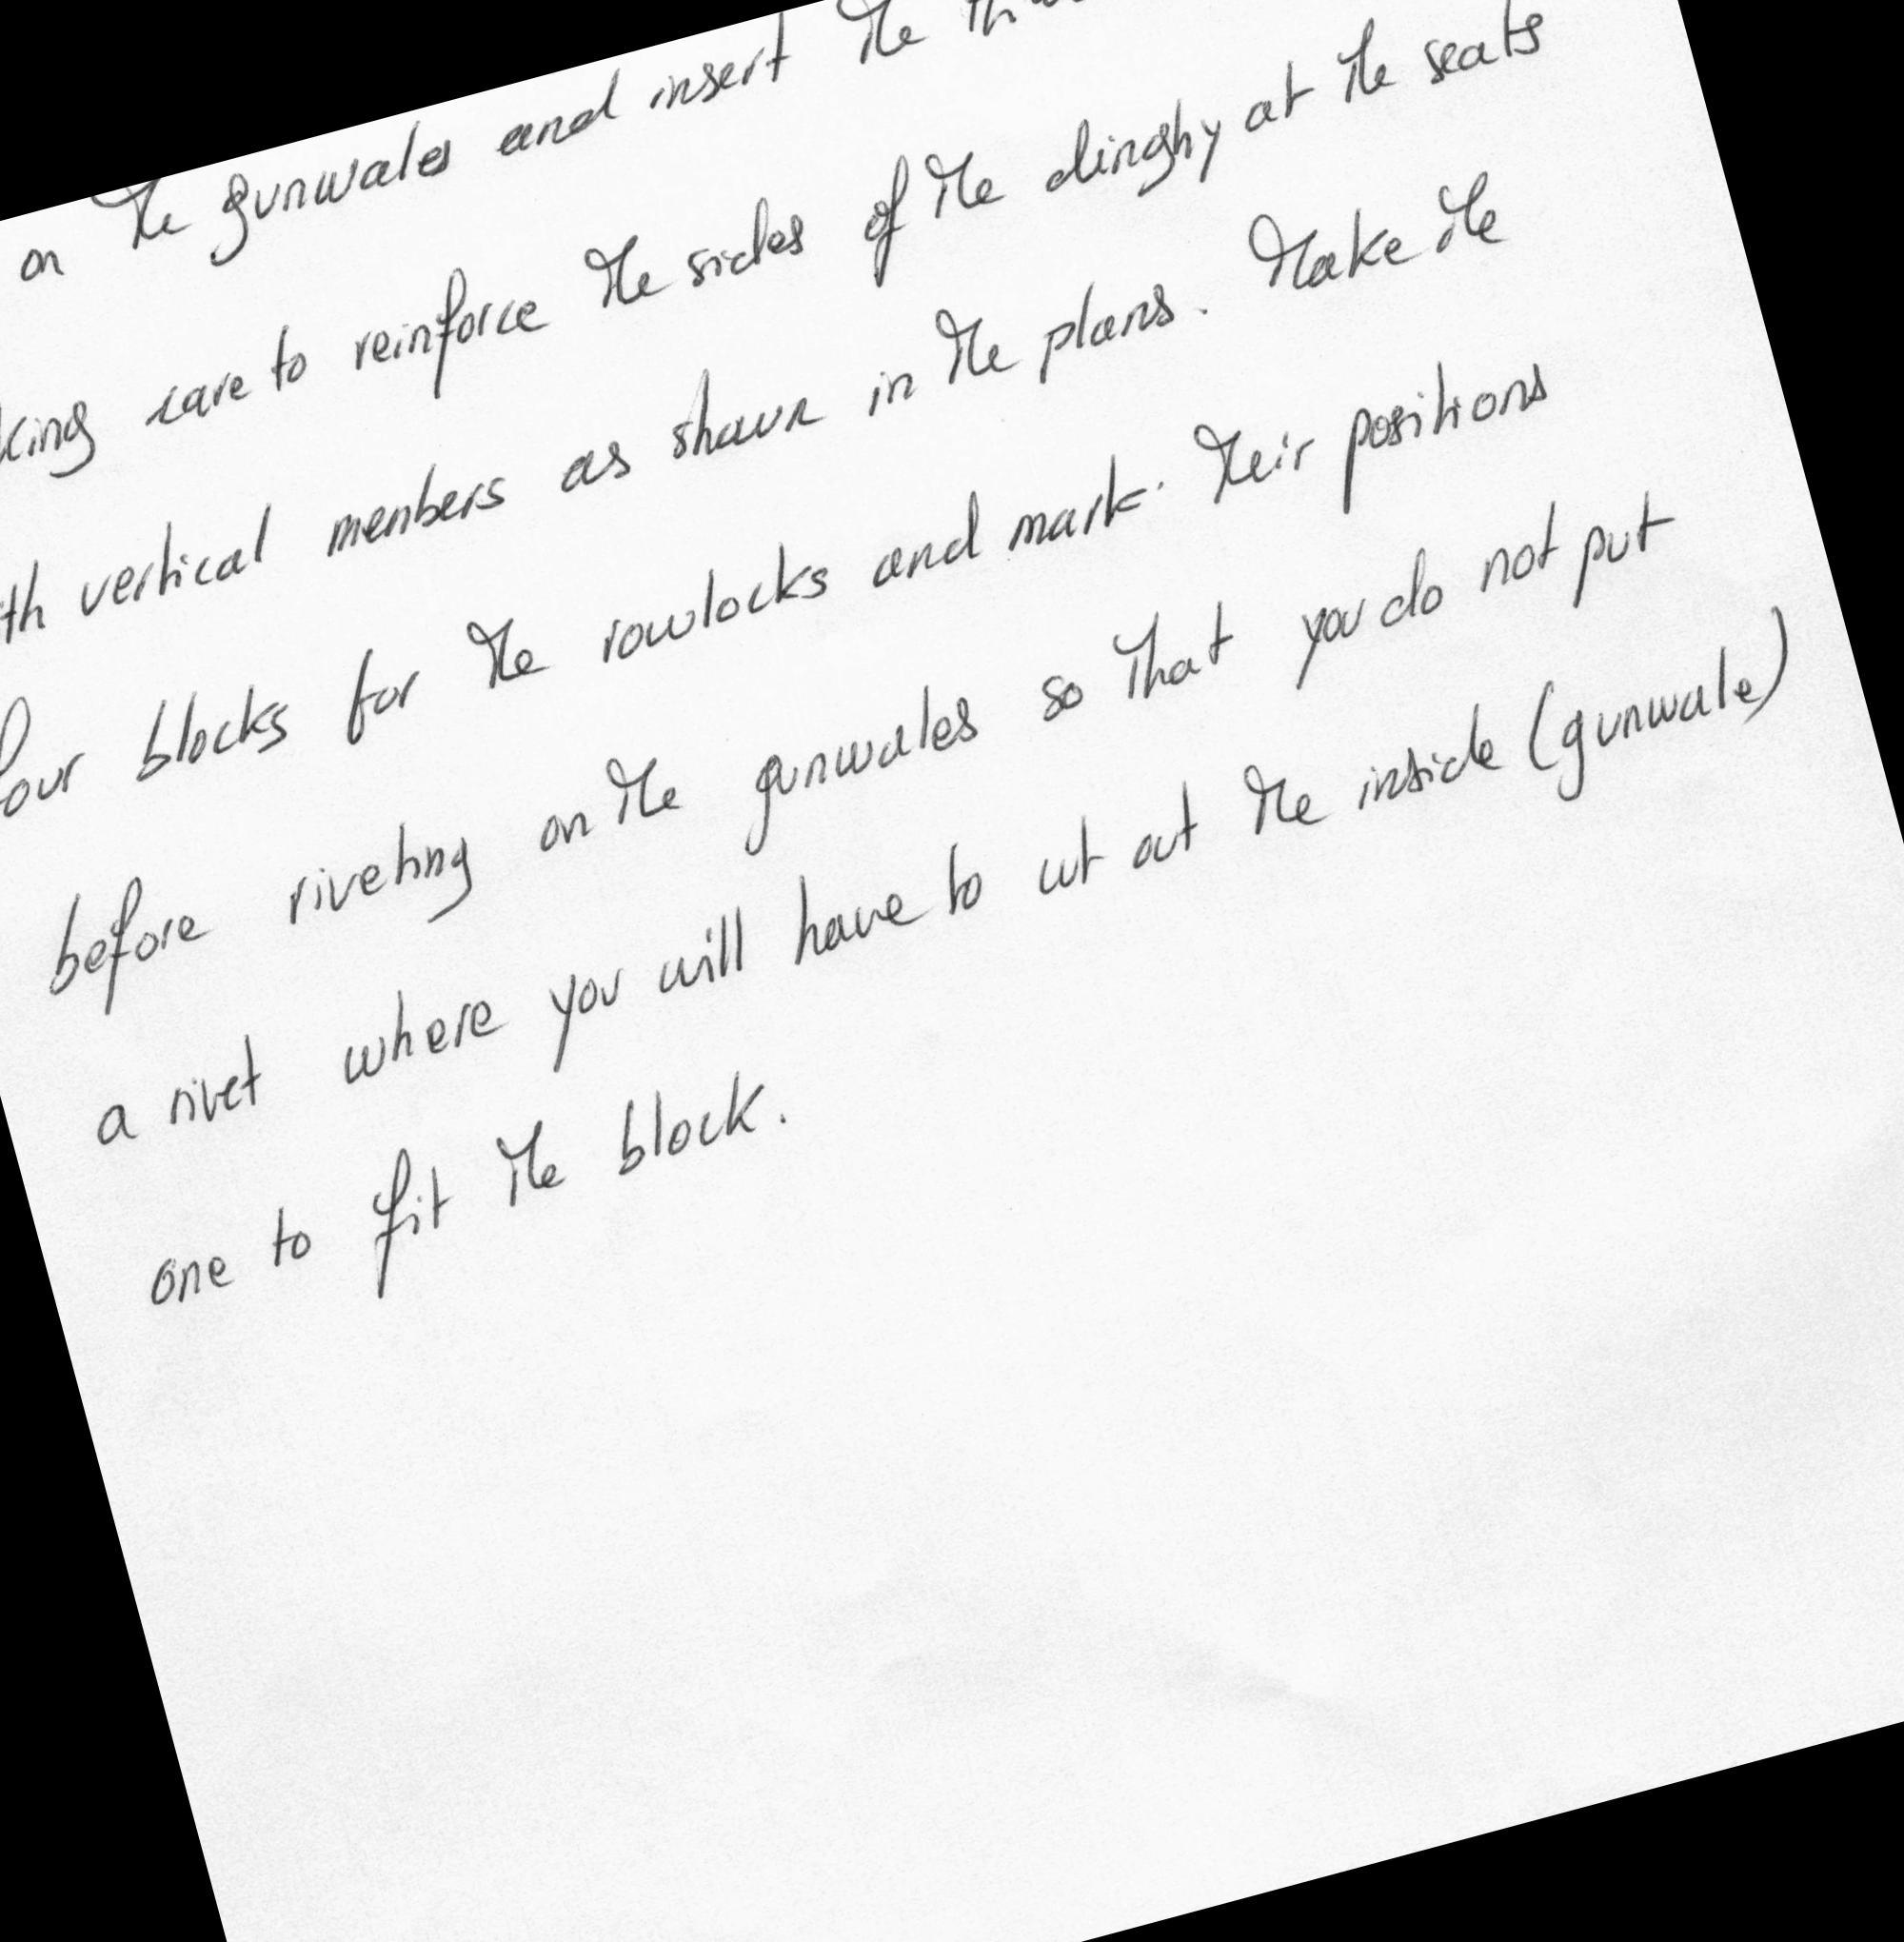 on the gunwales and insert the
king care to reinforce the sides of the dinghy at the seats
th vertical members as shown in the plans. Make the
four blocks for the rowlocks and mark their positions
before riveting on the gunwales so that you do not put
a rivet where you will have to cut out the inside (gunwale)
one to fit the block.